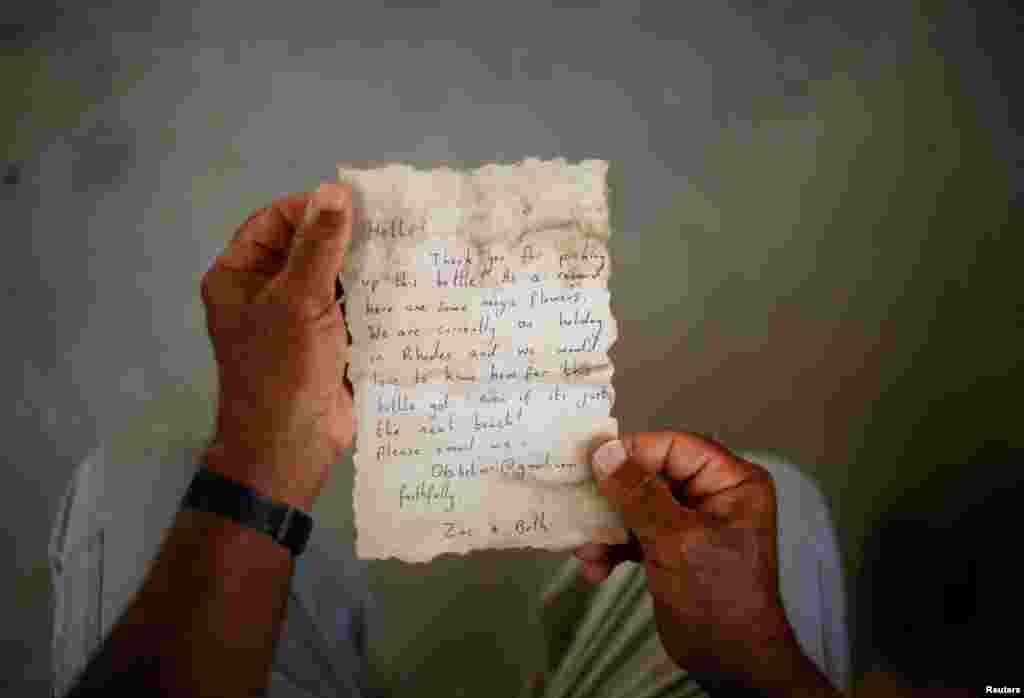 Hello!
Thank you for picking
up this bottle! As a reward
here are some magic flowers.
We are currently on holiday
in Rhodes and we would
love to know how far this
bottle got even if its just
the next beach!
Please email me -
@gmail.com
faithfully
Zac + Beth
Reuters